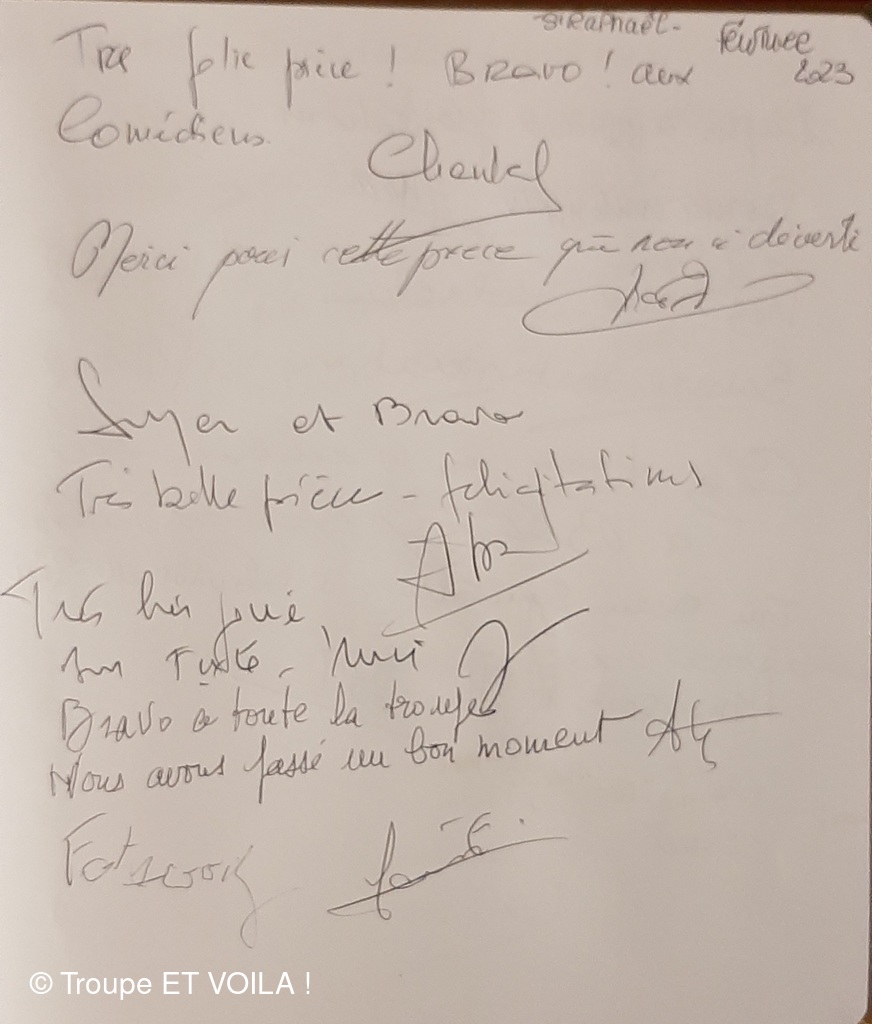 St RAPHAËL - Février 2023
Tre jolie pièce ! BRAVO ! aux
Comédiens.
Chantal
Merci pour cette piece qui nou a diverti
Super et Bravo
Très belle pièce - felicitations
Très bien joué
Bravo à toute la troupe
Nous avons passé un bon moment
© Troupe ET VOILA !